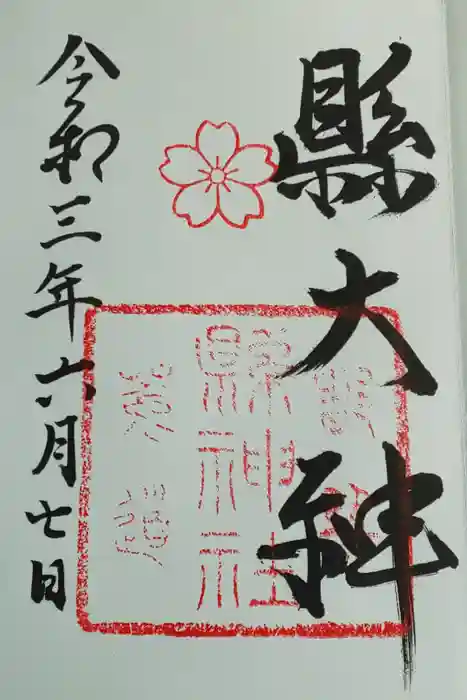 縣大神
縣神社
令和三年六月七日